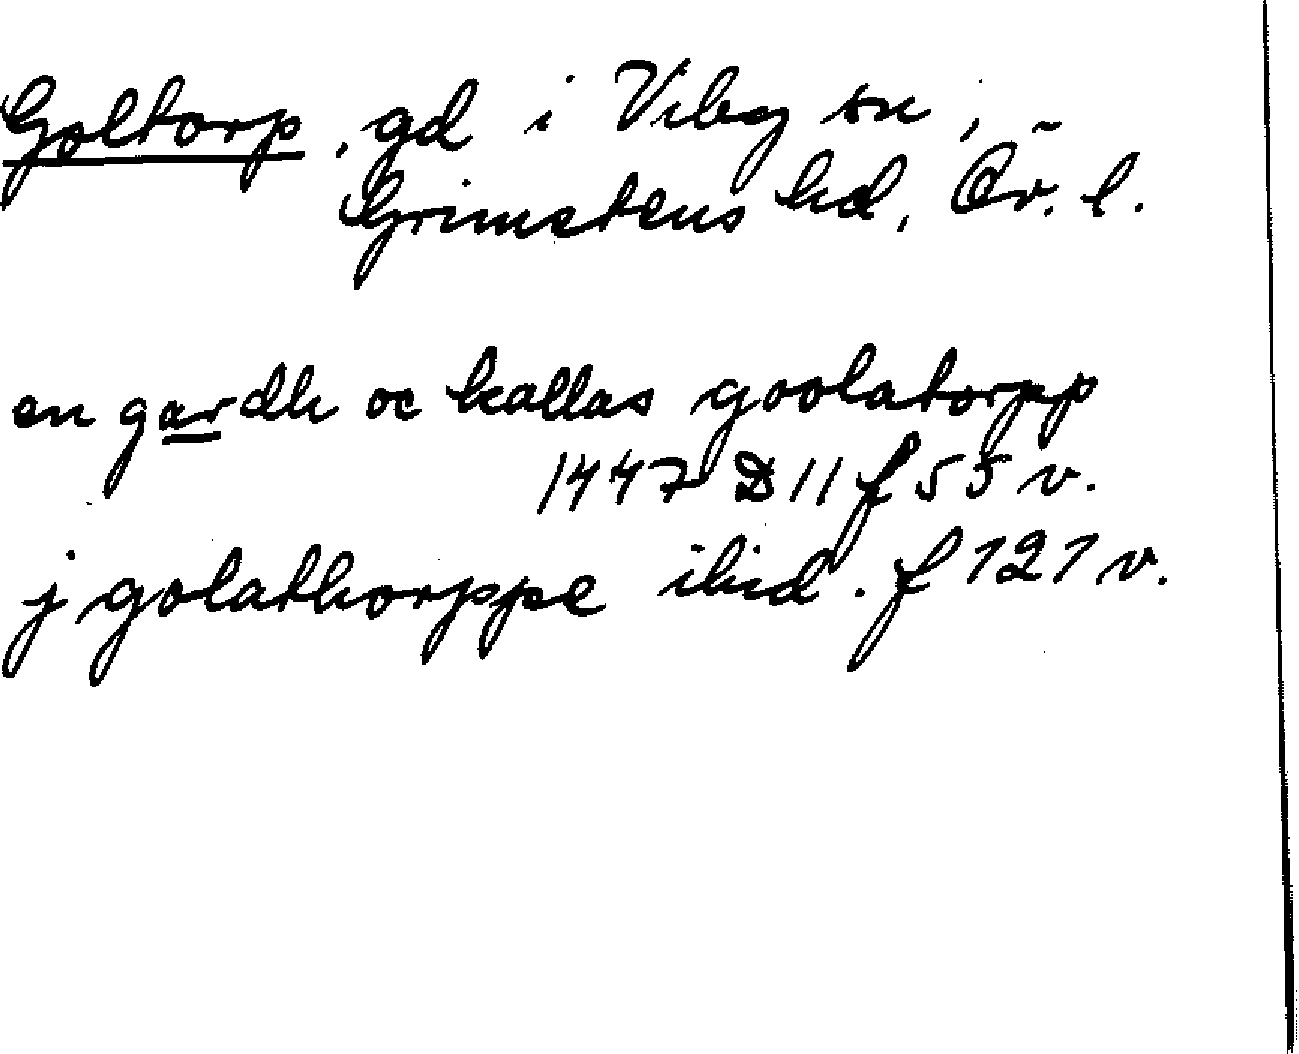 Goltorp, gd i Viby sn,
Grimstens hd, Ör. l.
en gardh oc kallas goolatorpp
1447 D 11 f 55 v.
j golathorppe ibid. f 121 v.